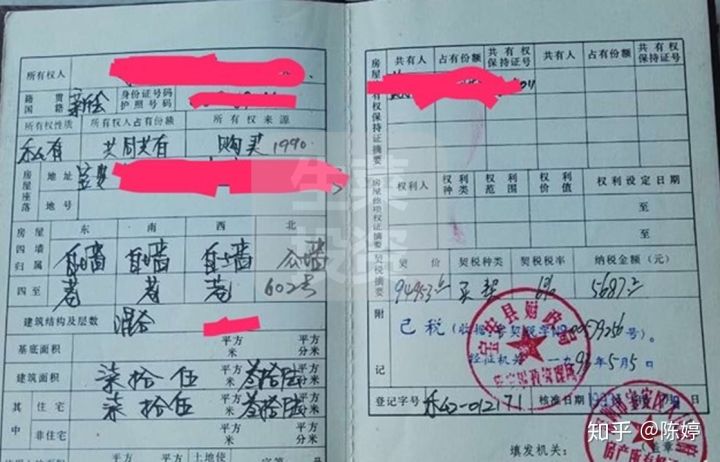 所有权人
籍贯
国籍
新会
身份证号码
护照号码
所有权性质 所有权人占有份额 所有权来源
私有 共同共有 购买1990
房屋座落
地址 宝安
地号
房屋四墙归属
东 南 西 北
自墙 自墙 自墙 公墙
四至 巷 巷 巷 602号
建筑结构及层数 混合
基底面积 平方米 平方分米
建筑面积 柒拾伍 平方米 叁拾陆 平方分米
其中
住宅 柒拾伍 平方米 叁拾陆 平方分米
非住宅 平方米 平方分米
土地使
房屋共有权保持证摘要
共有人 占有份额 共有权保持证号 共有人 占有份额 共有权保持证号
房屋他项权证摘要
权利人 权利种类 权利范围 权利价值 权利设定日期
至
至
契税摘要
契价 契税种类 契税税率 纳税金额(元)
买契 6% 5687
附记
已税(收据 号契税字No 0059256号)。
经征机关 一九九 年5月5日
宝安县财政局
登记字号 私42-012171 核准日期
填发机关:
(盖章)
生菜投资
知乎 @陈婷